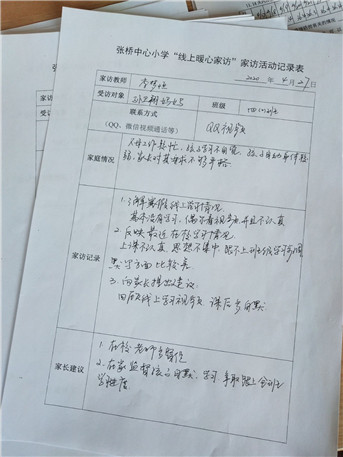 张桥中心小学“线上暖心家访”家访活动记录表
2020 年 4 月 27 日
家访教师
受访对象 班级 四(1)班
联系方式
(QQ、微信视频通话等) QQ视频
家庭情况
父母工作较忙,孩子学习不自觉,孩子
家长对其要求不够严格
家访记录
1.了解寒假线上学习情况
基本没有学习,偶尔看视频,并且不认真
2.反映最近在校学习情况
上课不认真,思想不集中,跟不上班级学习步调
默字方面比较差
3.向家长提出建议
回放线上学习视频,课后多自默
家长建议
1.在校老师多督促
2.在家监督孩子自默,学习,争取跟上全班
学习进度